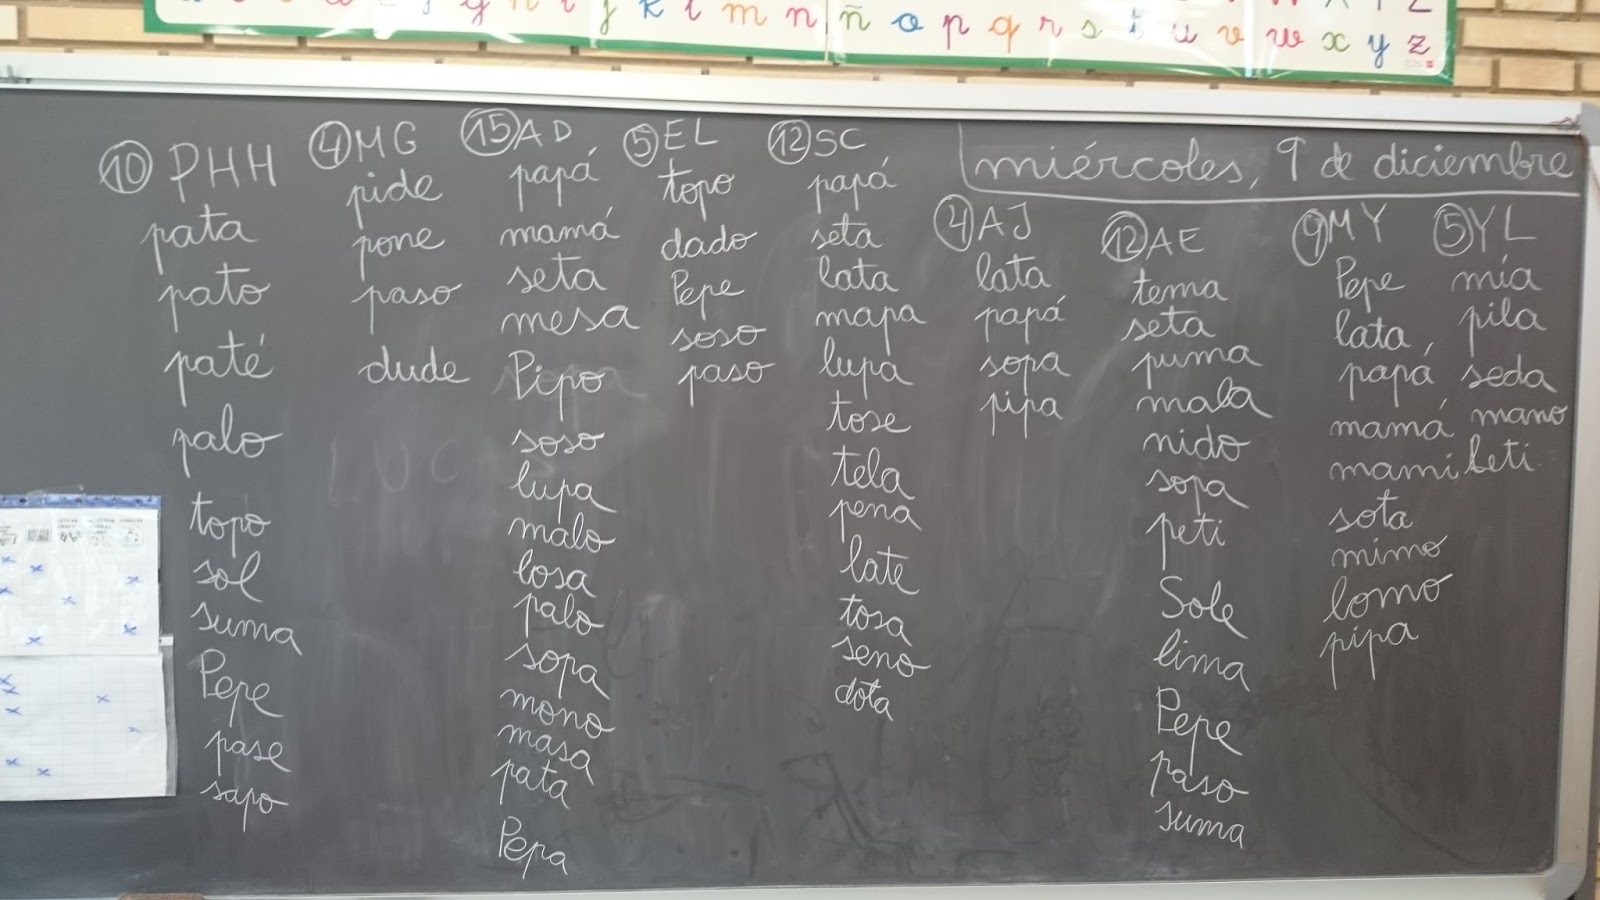 g n i j k l m n ñ o p q r s t u v w x y z
miércoles, 9 de diciembre
10 PHH
pata
pato
paté
palo
topo
sol
suma
Pepe
pase
sapo
4 MG
pide
pone
paso
dude
15 AD
papá
mamá
seta
mesa
Pipo
soso
lupa
malo
losa
palo
sopa
mono
masa
pata
Pepa
5 EL
topo
dado
Pepe
soso
paso
12 SC
papá
seta
lata
mapa
lupa
tose
tela
pena
late
tosa
seno
dota
4 AJ
lata
papá
sopa
pipa
12 AE
tema
seta
puma
mala
nido
sopa
peti
Sole
lima
Pepe
paso
suma
9 MY
Pepe
lata,
papá
mamá
mami
sota
mimo
lomo
pipa
5 YL
mía
pila
seda
mano
Leti
LUC